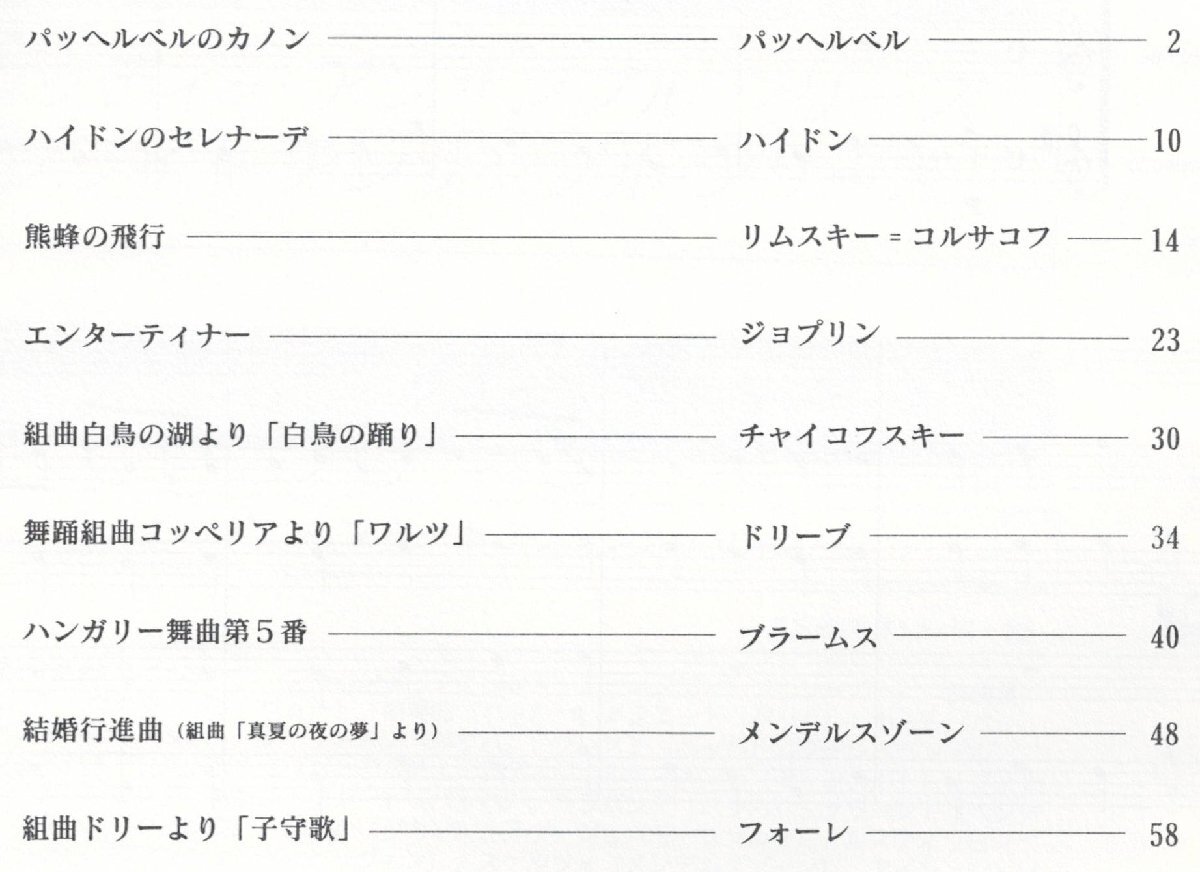 パッヘルベルのカノン パッヘルベル 2
ハイドンのセレナーデ ハイドン 10
熊蜂の飛行 リムスキー＝コルサコフ 14
エンターティナー ジョプリン 23
組曲白鳥の湖より「白鳥の踊り」 チャイコフスキー 30
舞踊組曲コッペリアより「ワルツ」 ドリーブ 34
ハンガリー舞曲第５番 ブラームス 40
結婚行進曲（組曲「真夏の夜の夢」より） メンデルスゾーン 48
組曲ドリーより「子守歌」 フォーレ 58